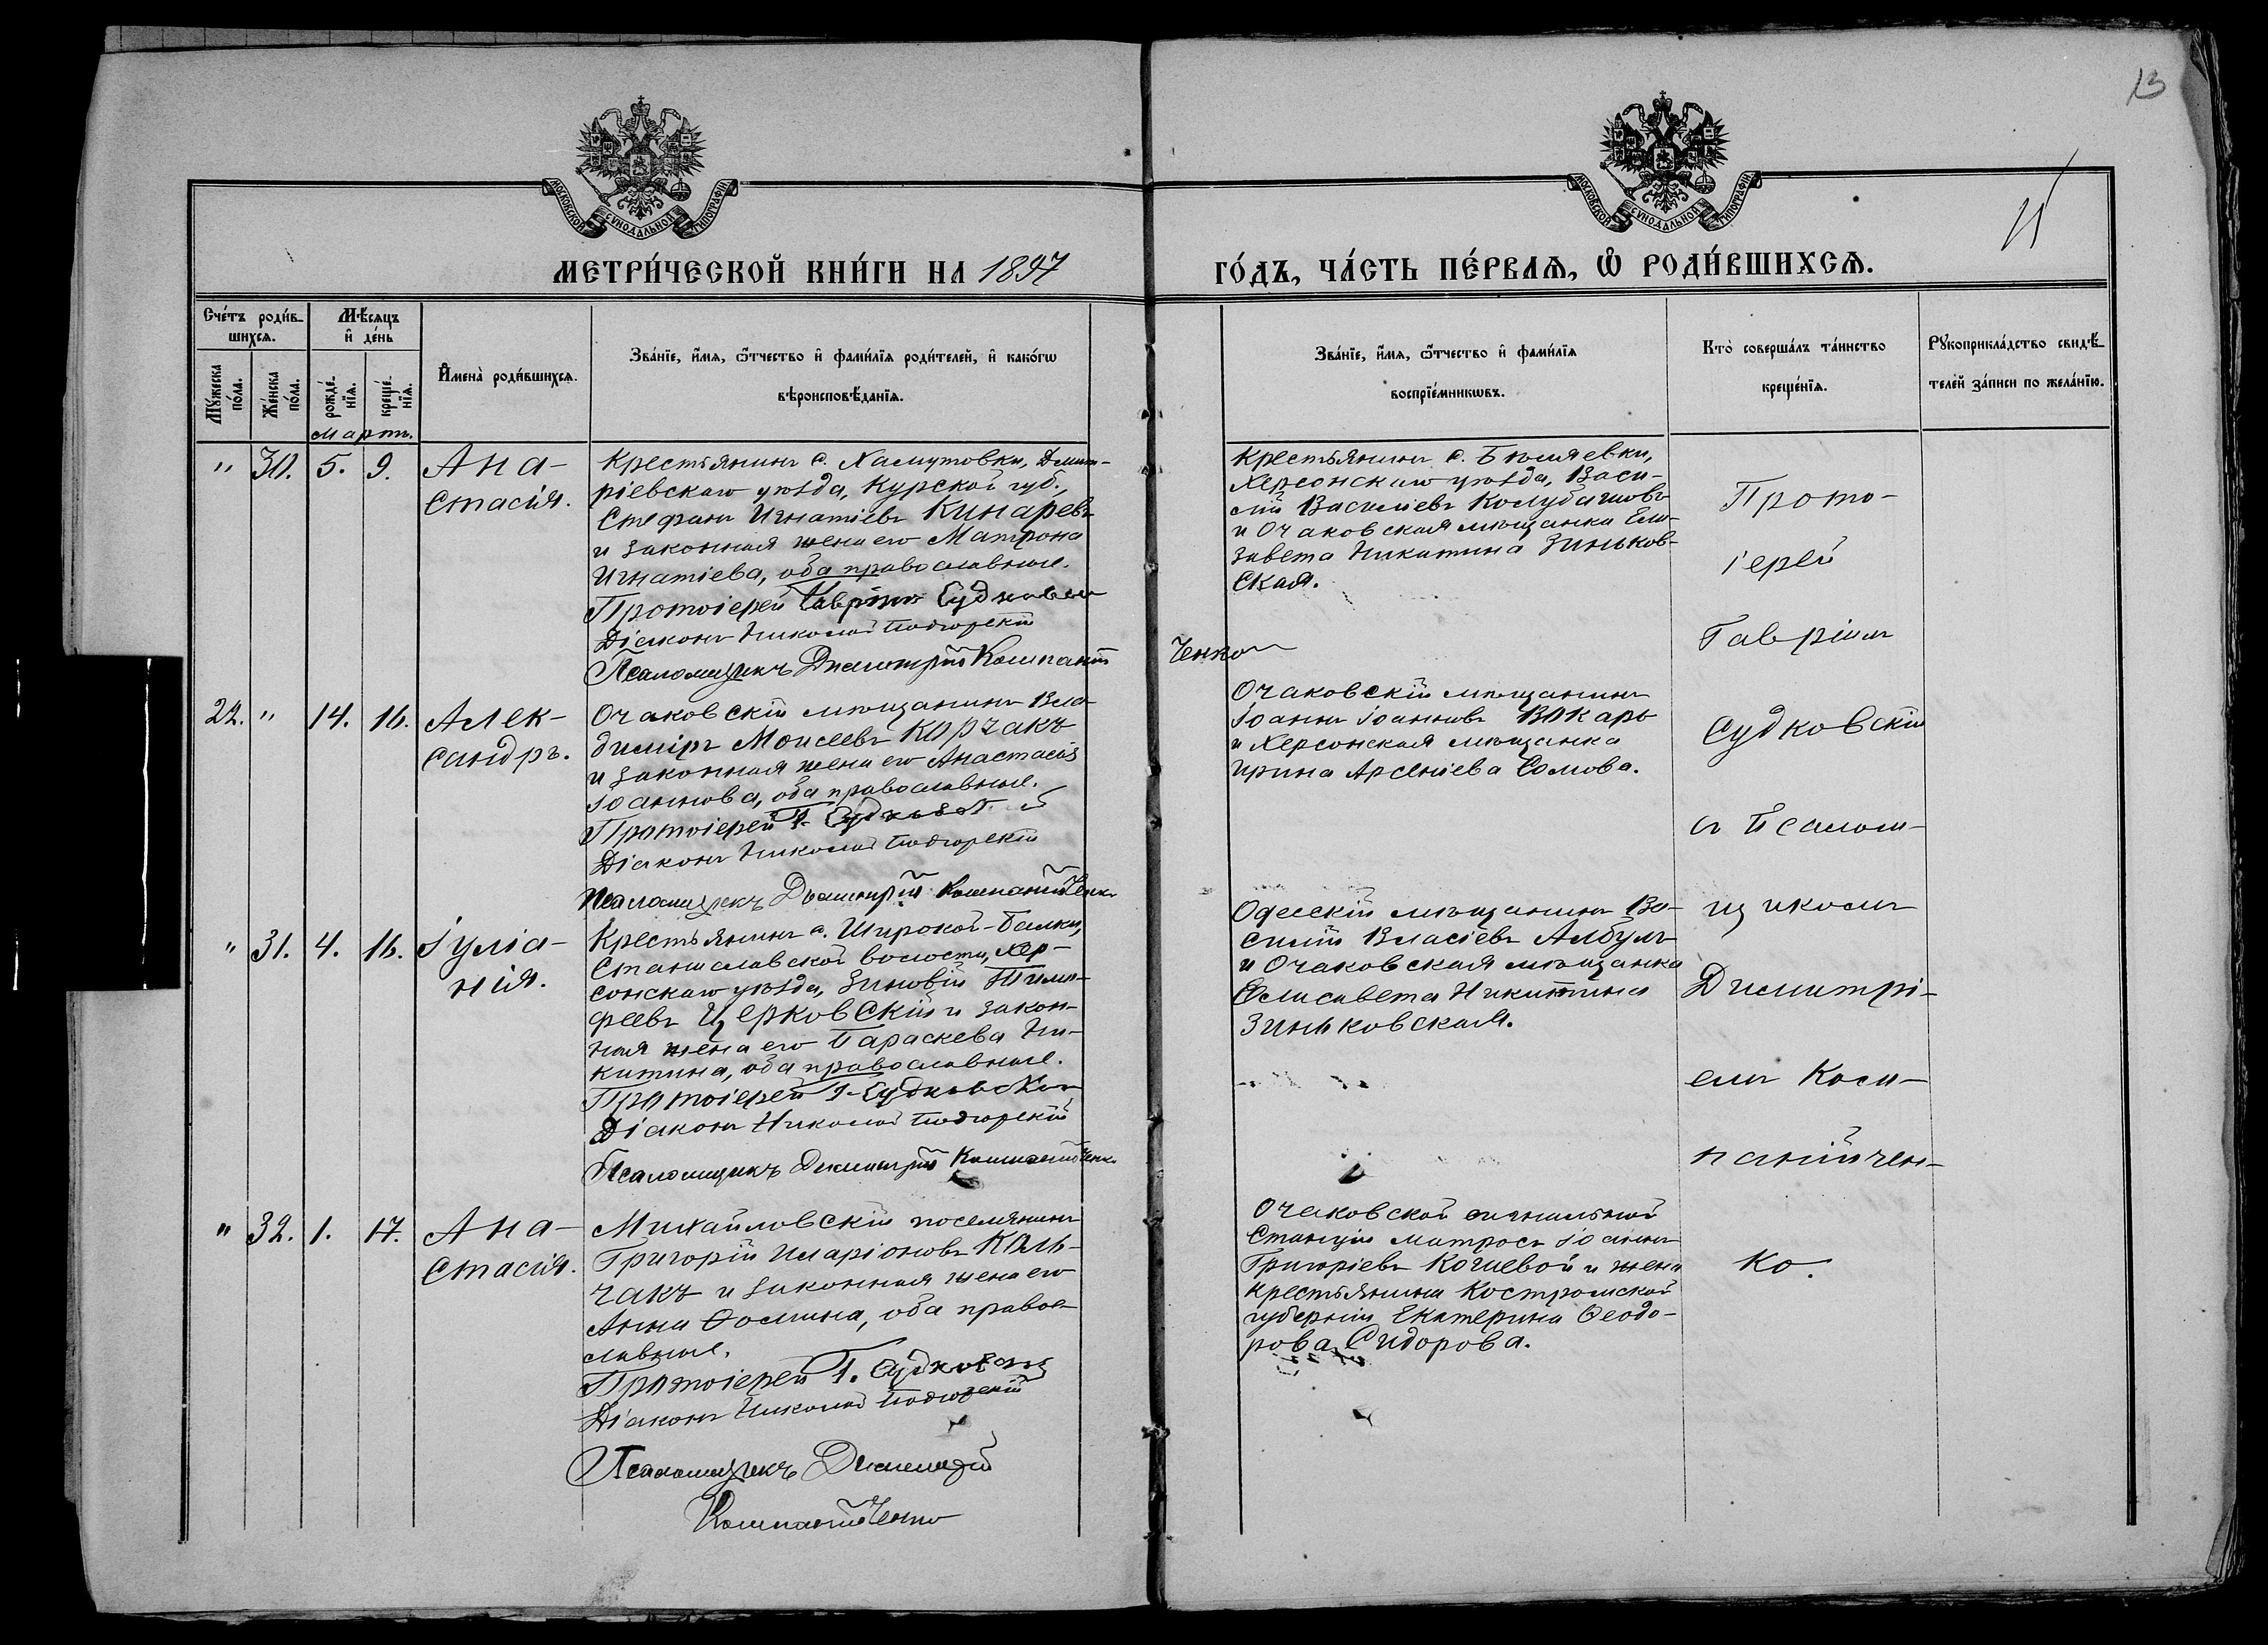 13
11
МОСКОВСКОЙ СѴНОДАЛЬНОЙ ТИПОГРАФІИ
МОСКОВСКОЙ СѴНОДАЛЬНОЙ ТИПОГРАФІИ
МЕТРИ́ЧЕСКОЙ КНИ́ГИ НА 1897
ГО́ДЪ, ЧА́СТЬ ПЕ́РВАѦ, Ѡ҆ РОДИ́ВШИХСѦ.
Сче́тъ роди́в-
шихсѧ.
Мѣ́сѧцъ
и҆ де́нь
Мꙋ́жеска
по́ла.
Же́нска
по́ла.
рожде́-
нїѧ.
креще́-
нїѧ.
И҆мена̀ роди́вшихсѧ.
Зва́нїе, и҆́мѧ, ѻ҆́тчество и҆ фами́лїѧ роди́телей, и҆ како́гѡ
вѣроисповѣ́данїѧ.
Зва́нїе, и҆́мѧ, ѻ҆́тчество и҆ фами́лїѧ
воспрїе́мникѡвъ.
Кто̀ соверша́лъ та́инство
креще́нїѧ.
Рꙋкоприкла́дство свидѣ́-
телей за́писи по жела́нїю.
Мартъ.
" 30. 5. 9. Ана-
стасія.
Крестьянинъ с. Хамутовки, Дмит-
ріевскаго уѣзда, Курской губ.,
Стефанъ Игнатіевъ Кинаревъ
и законная жена его Матрона
Игнатіева, оба православные.
Протоіерей Гавріилъ Судковскій
Діаконъ Николай Подгорскій
Псаломщикъ Димитрій Компаній
ченко
Крестьянинъ с. Бѣляевки,
Херсонскаго уѣзда, Васи-
лій Василіевъ Колубашовъ
и Очаковская мѣщанка Ели-
завета Никитина Зиньков-
ская.
22. " 14. 16. Алек-
сандръ.
Очаковскій мѣщанинъ Вла-
диміръ Моисеевъ Корчакъ
и законная жена его Анастасія
Іоаннова, оба православные.
Протоіерей Г. Судковскій
Діаконъ Николай Подгорскій
Псаломщикъ Димитрій Компанійченко
Очаковскій мѣщанинъ
Іоаннъ Іоанновъ Вокарь
и Херсонская мѣщанка
Ирина Арсеніева Сомова.
" 31. 4. 16. Іуліа-
нія.
Крестьянинъ с. Широкой-Балки,
Станиславской волости, Хер-
сонскаго уѣзда, Зиновій Тимо-
феевъ Церковскій и закон-
ная жена его Параскева Ни-
китина, оба православные.
Протоіерей Г. Судковскій
Діаконъ Николай Подгорскій
Псаломщикъ Димитрій Компанійченко
Одесскій мѣщанинъ Ва-
силій Власіевъ Албулъ
и Очаковская мѣщанка
Елисавета Никитина
Зиньковская.
" 32. 1. 17. Ана-
стасія.
Михайловскій поселянинъ
Григорій Иларіоновъ Коль-
чакъ и законная жена его
Анна Ѳомина, оба право-
славные.
Протоіерей Г. Судковскій
Діаконъ Николай Подгорскій
Псаломщикъ Димитрій
Компанійченко
Очаковской сигнальной
станціи матросъ Іоаннъ
Григоріевъ Кочиевой и жена
крестьянина Костромской
губерніи Екатерина Ѳеодо-
рова Сидорова.
Прото-
іерей
Гавріилъ
Судковскій
съ Псалом-
щикомъ
Димитрі-
емъ Ком-
панійчен-
ко.